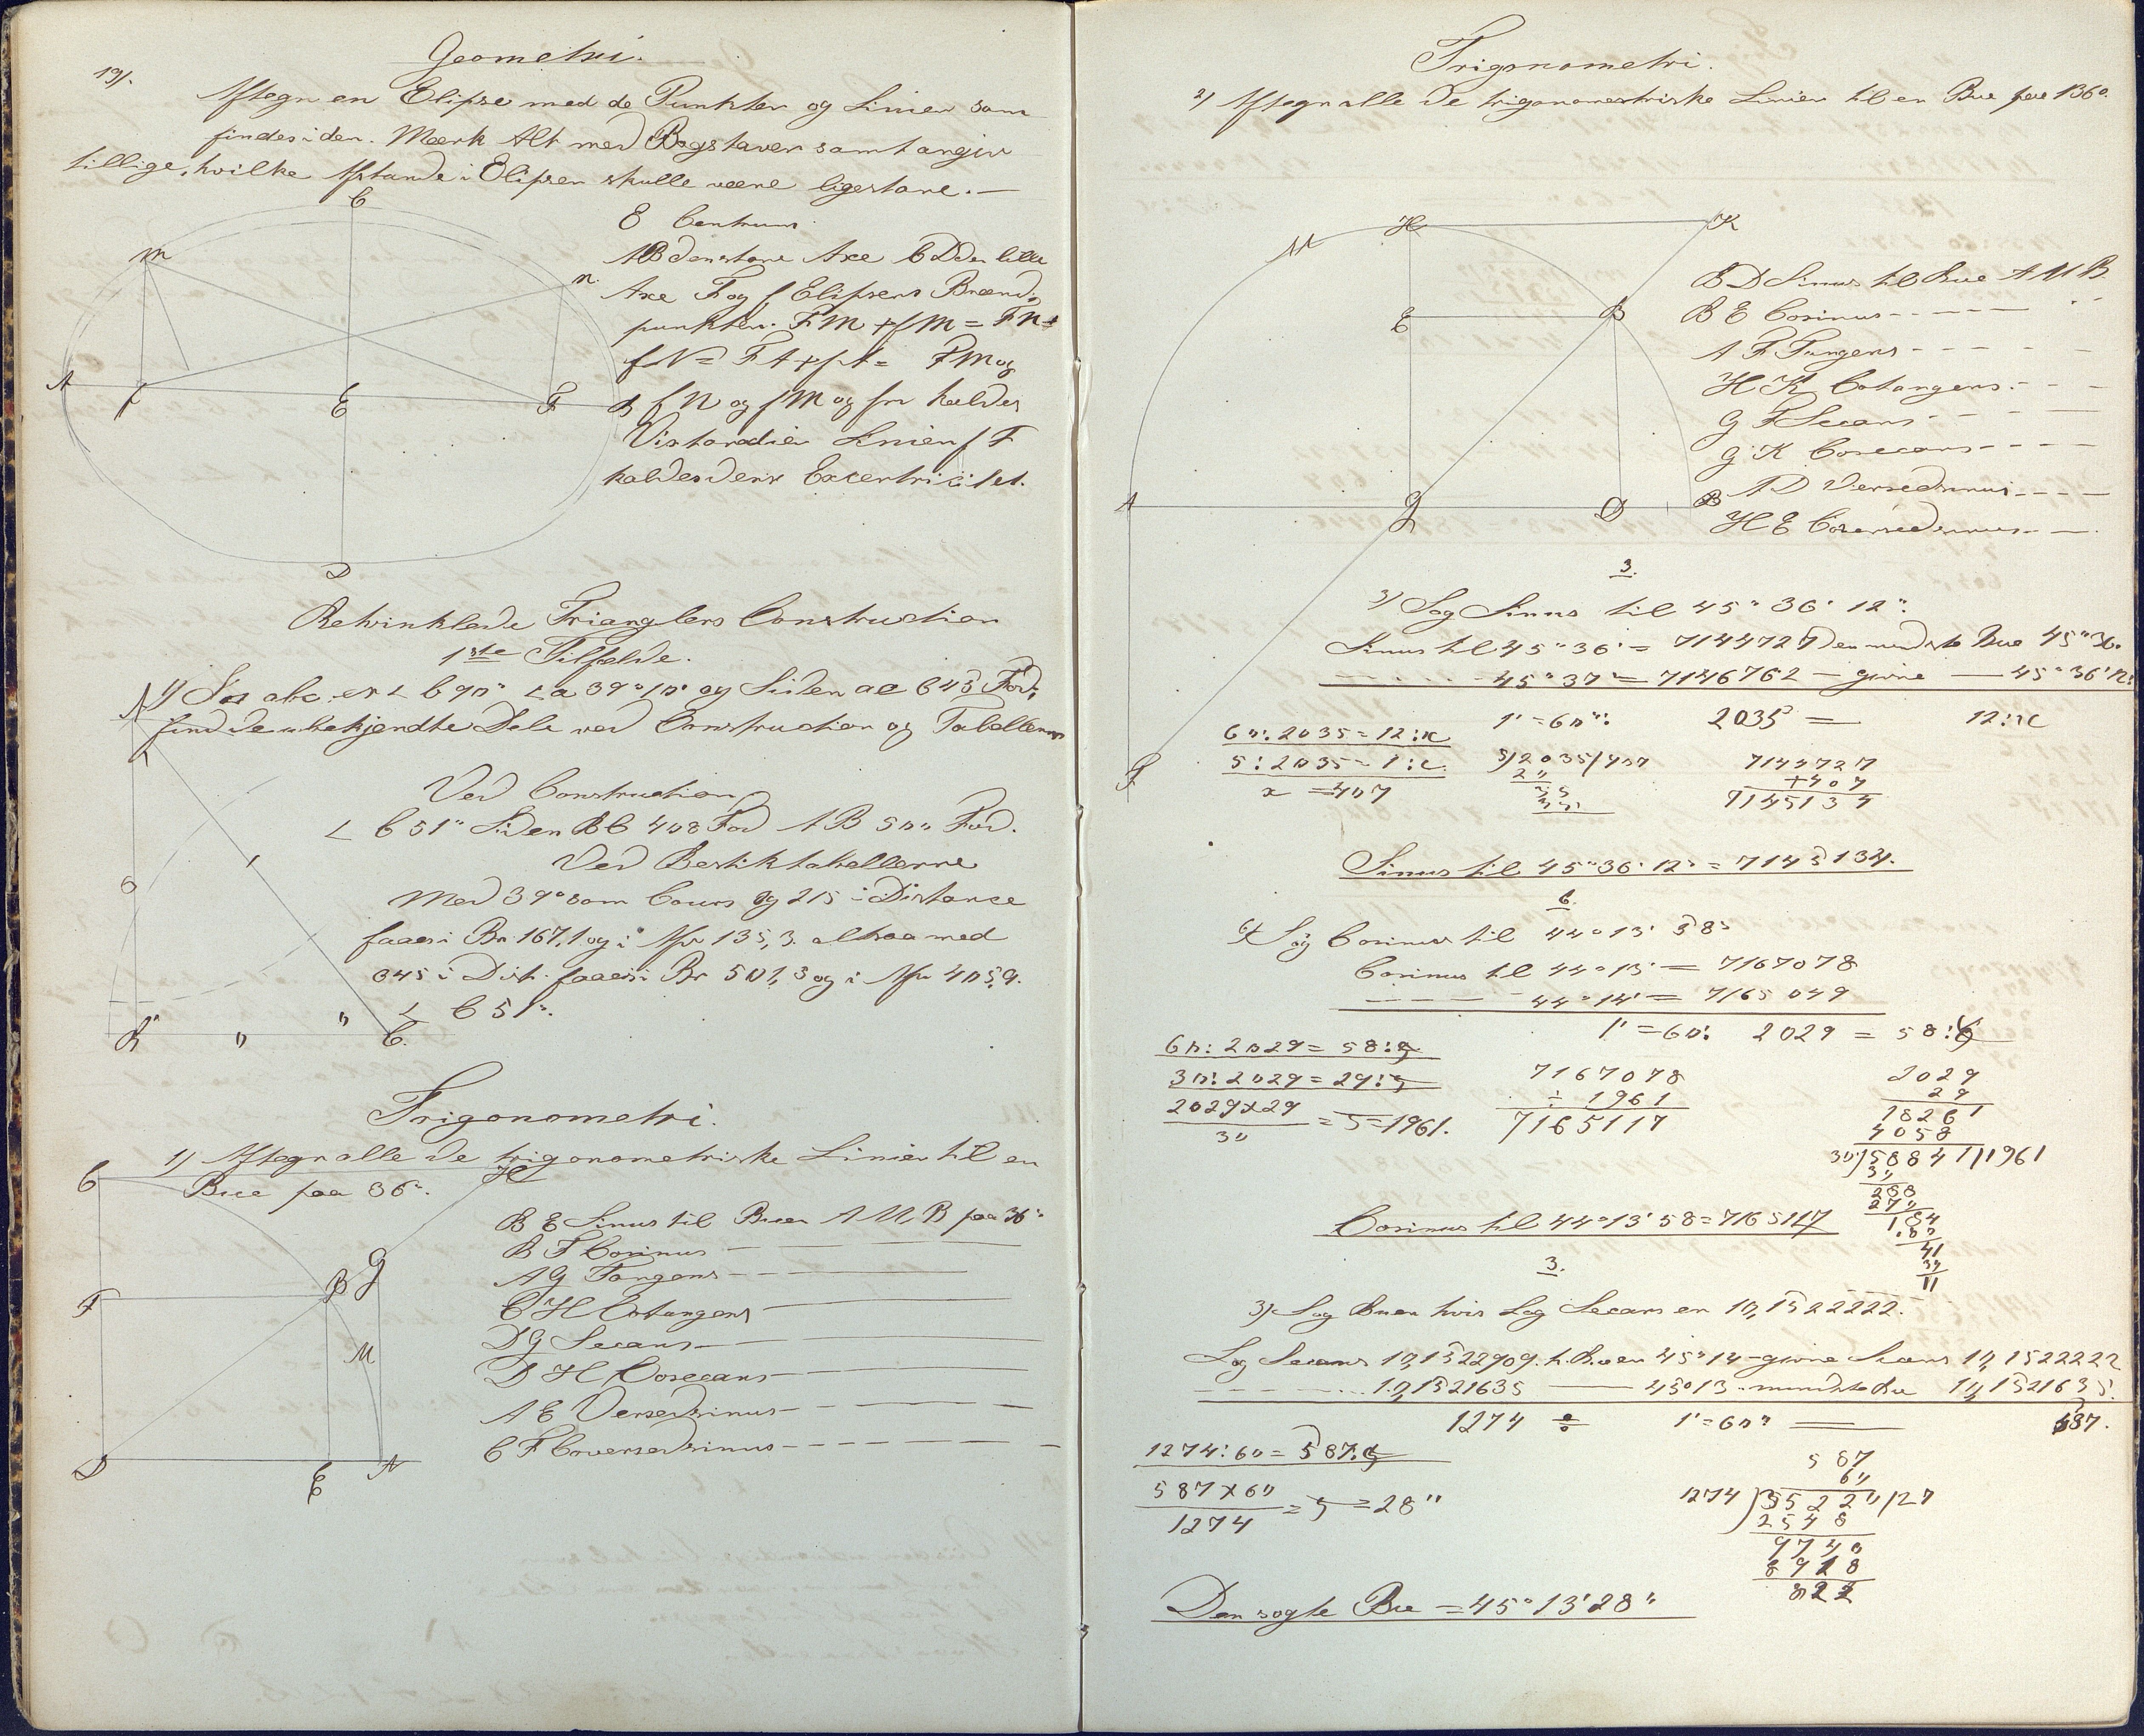 Geometri.
19).
Aftegn en Elipse med de Punkter og Linier som
findes i den. Mærk Alt med Bogstaver samt angiv
tillige, hvilke Afstande i Elipsen skulle være ligestore.—
C
M
n.
A
f
E
F
B
D
E Centrum
AB den store Axe CD den lille
Axe F og f Elipsens Brænd-
punkter. FM + fM = Fn +
fN = FA + fA = FM og
fN og fM og fn kaldes
Linien f F
kaldes dens Excentricitet.
Retvinklede Trianglers Construction
1ste Tilfælde.
1) I abc er < b 90° < a 39° 10' og Siden ac 645 Fod,
find de ubekjendte Dele ved Construction og Tabellerne
A
Ved Construction
< C 51° Siden BC 408 Fod AB 500 Fod.
Ved Bestiktabellerne
Med 39° som Cours og 215 i Distance
faaes i Br 167,1 og i Afv 135,3. altsaa med
645 i Dist. faaes i Br 501,3 og i Afv 405,9.
< C 51°.
B
C.
Trigonometri.
1) Aftegn alle de trigonometriske Linier til en
Bue paa 36°.
C
H
F
B
G
M
D
E
A
BE Sinus til Buen AMB paa 36°
BF Cosinus — —
AG Tangens — —
CH Cotangens —
DG Secans — —
DH Cosecans — —
AE Versedsinus — — —
CF Coversedsinus — — — —
Trigonometri.
2) Aftegn alle de trigonometriske Linier til en Bue paa 136°.
M
H
K
E
B
A
G
D
B
F
BD Sinus til Bue AMB
BE Cosinus — — —
AF Tangens — — —
HK Cotangens — —
GF Secans — — —
GK Cosecans — — —
AD Versedsinus — — —
HE Coversedsinus — —
3.
3) Søg Sinus til 45° 36' 12".
Sinus til 45° 36' = 7144727 den mindste Bue 45° 36'
— — — 45° 37' = 7146762 — givne — 45° 36' 12"
1' = 60": 2035 = 12:x
60:2035 = 12:x
5:2035 = 1:x
x = 407
5)2035/407
20
35
35
7144727
+407
7145134
Sinus til 45° 36' 12" = 7145134.
6.
6) Søg Cosinus til 44° 13' 58"
Cosinus til 44° 13' = 7167078
— — — 44° 14' = 7165049
1' = 60: 2029 = 58:x
60:2029 = 58:x
30:2029 = 29:x
2029×29
30
= x = 1961.
7167078
÷ 1961
7165117
2029
29
18261
4058
30)58841/1961
30
288
270
184
180
41
30
11
Cosinus til 44° 13' 58 = 7165117
3.
3) Søg Buen hvis Log Secans er 10,1522222.
Log Secans 10,1522909 t. Buen 45° 14 — givne Secans 10,1522222
— — — 10,1521635 — 45° 13 — mindste Bue 10,1521635.
1274 ÷ 1' = 60" — 587.
1274:60 = 587:x
587×60
1274
= x = 28"
587
60
1274)35220/27
2548
9740
8918
822
Den søgte Bue = 45° 13' 28"